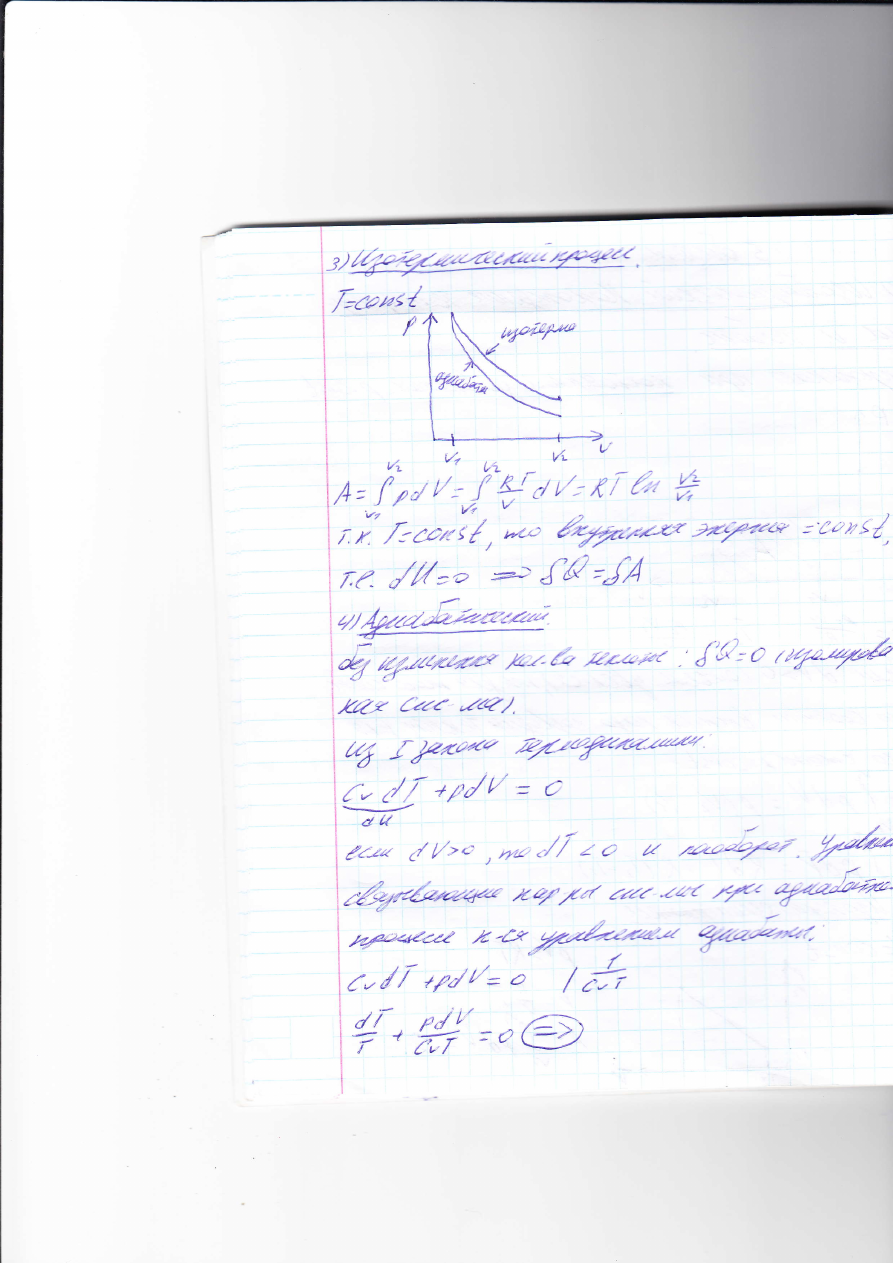 3) Изотермический процесс.
T=const
p
изотерма
адиабата
V1 V2 V
A = ∫V1V2 pdV = ∫V1V2 RT/V dV = RT ln V2/V1
т.к. T=const, то внутренняя энергия = const,
т.е. dU=0 => δQ=δA
4) Адиабатический.
без изменения кол-ва теплоты: δQ=0 (изолирова
ная сис-ма).
Из I закона термодинамики:
Cv dT + pdV = 0
dU
если dV>0, то dT<0 и наоборот. Уравнен
связывающие пар-ры сис-мы при адиабатич.
процессе н-ся уравнением адиабаты:
CvdT + pdV = 0 | 1/CvT
dT/T + pdV/CvT = 0 =>